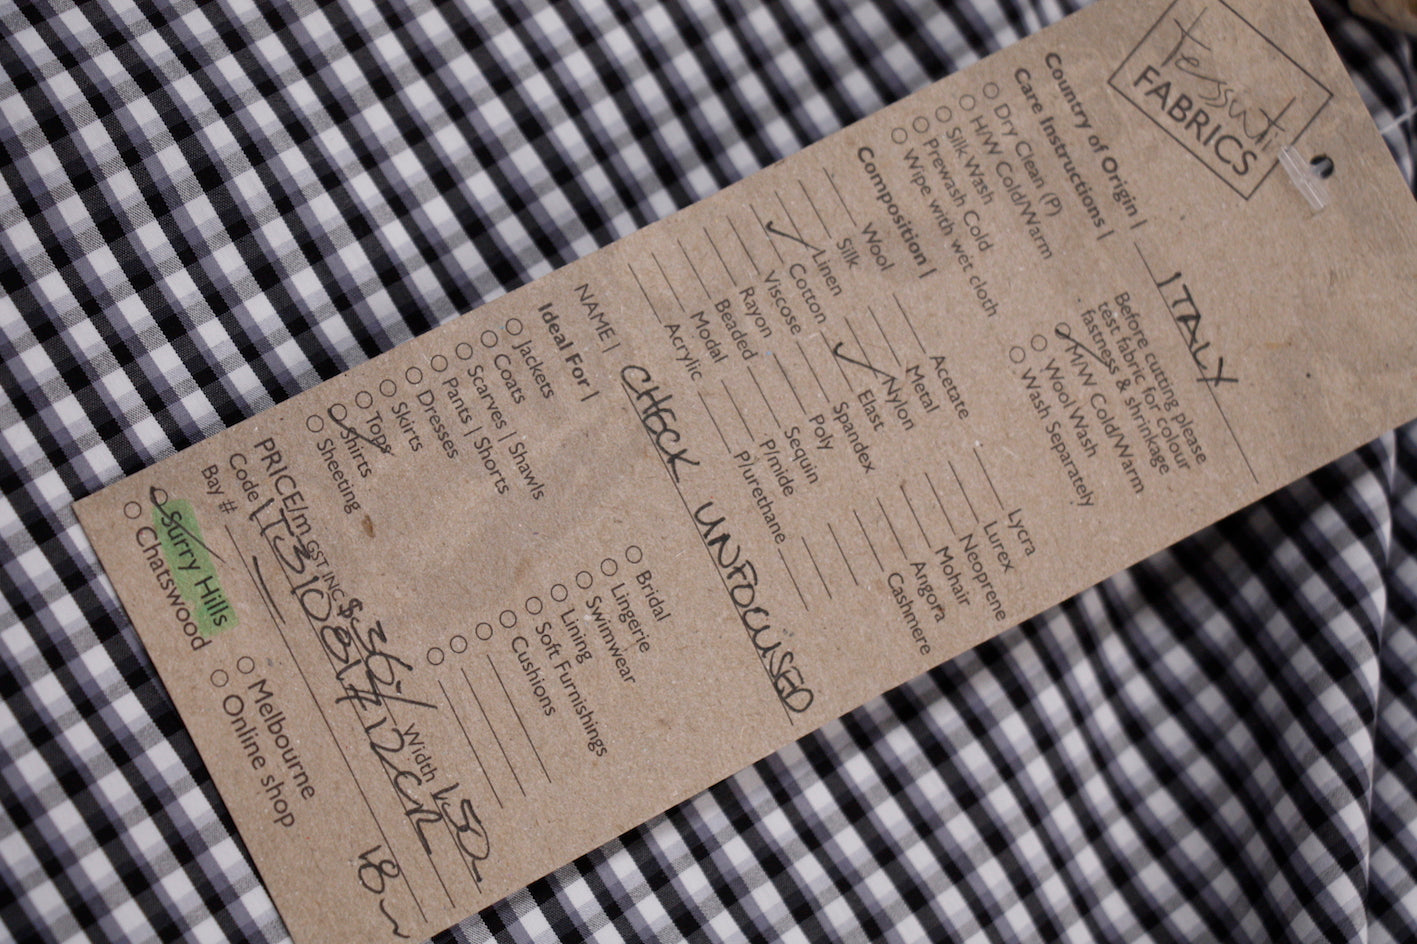 tessuti
FABRICS
Country of Origin | ITALY
Care Instructions |
Dry Clean (P)
H/W Cold/Warm
Silk Wash
Prewash Cold
Wipe with wet cloth
Before cutting please
test fabric for colour
fastness & shrinkage
M/W Cold/Warm
Wool Wash
Wash Separately
Composition |
Wool
Silk
Linen
Cotton
Viscose
Rayon
Beaded
Modal
Acrylic
Acetate
Metal
Nylon
Elast
Spandex
Poly
Sequin
P/mide
Plurethane
Lycra
Lurex
Neoprene
Mohair
Angora
Cashmere
NAME | CHECK UNFOCUSED
Ideal For |
Jackets
Coats
Scarves | Shawls
Pants | Shorts
Dresses
Skirts
Tops
Shirts
Sheeting
Bridal
Lingerie
Swimwear
Lining
Soft Furnishings
Cushions
PRICE/m GST INC $ 36 Width 150
Code
Bay #
Surry Hills
Chatswood
Melbourne
Online shop